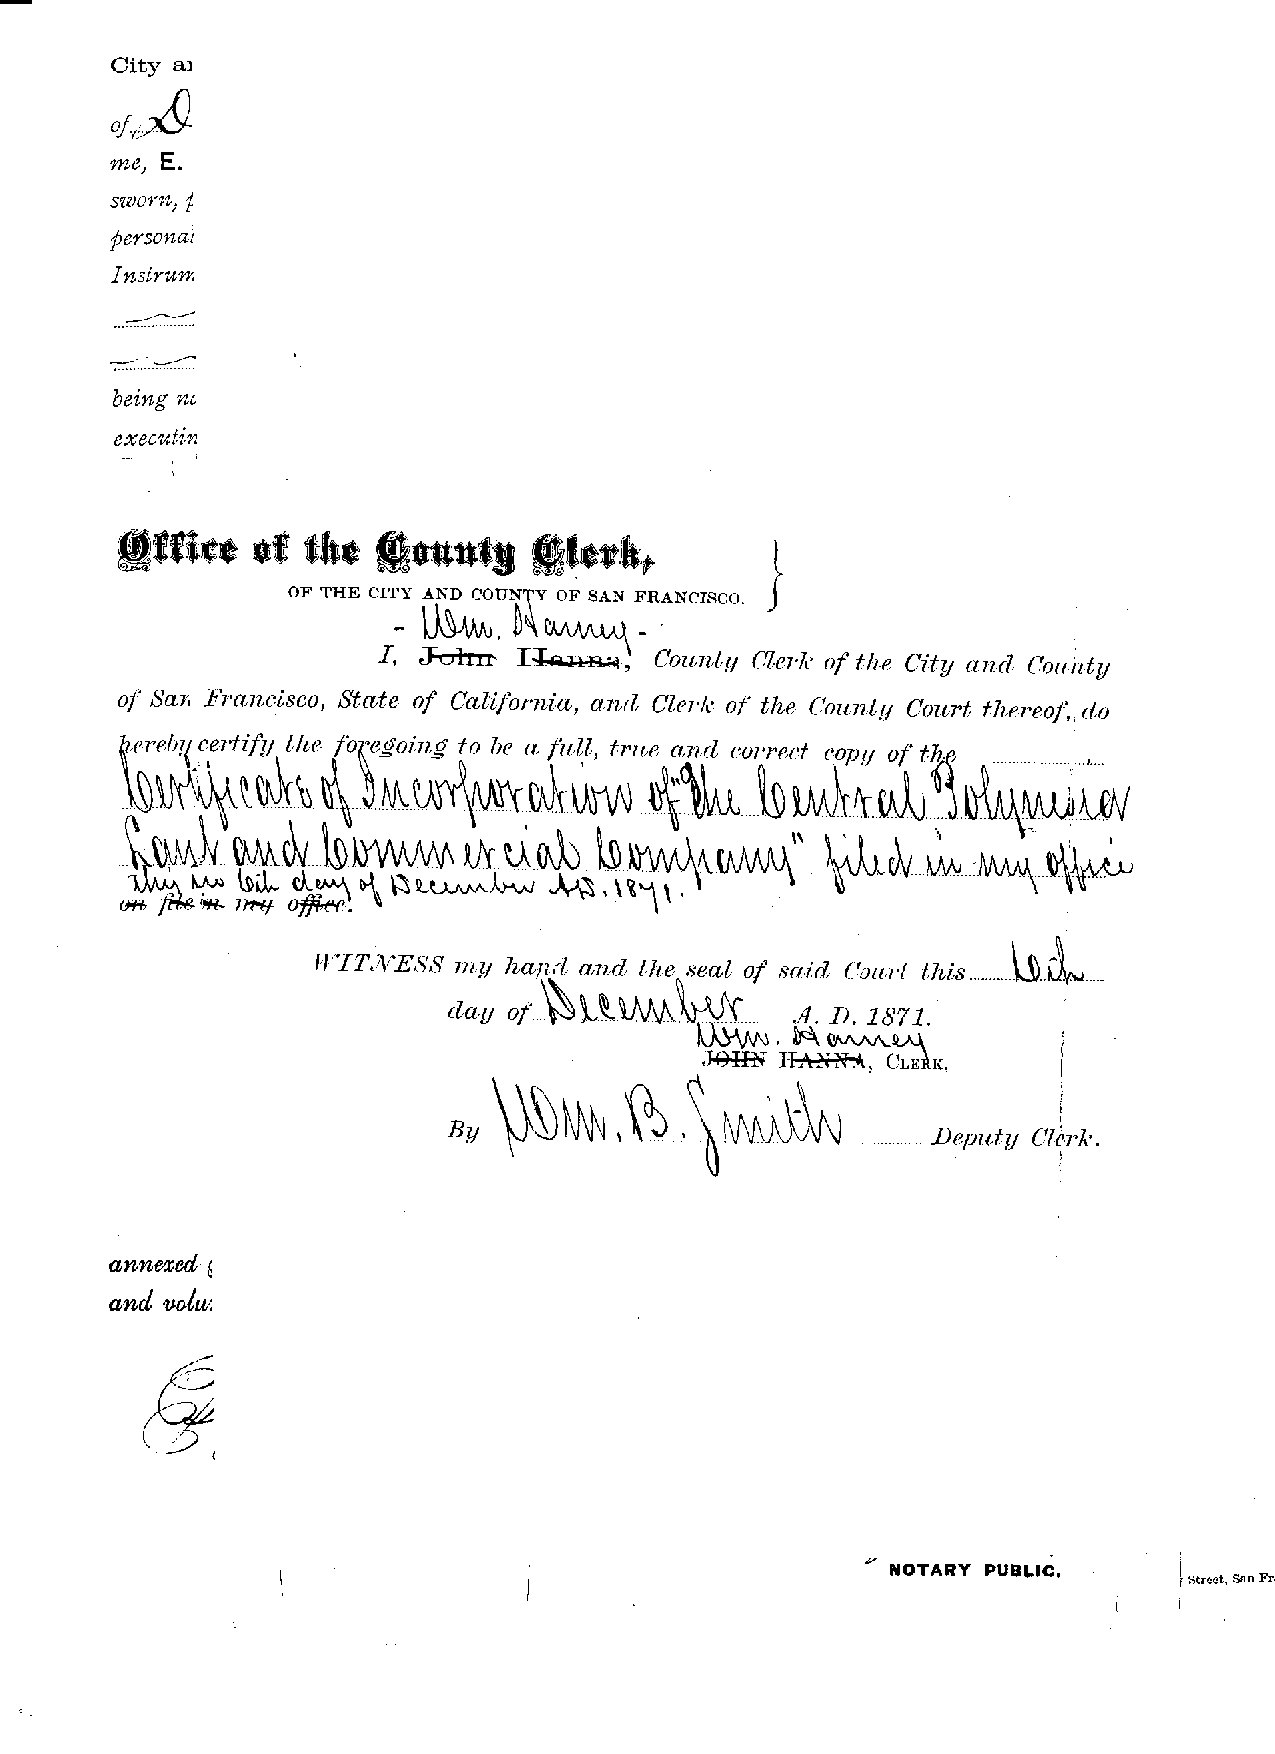 City
of
me, E.
sworn,
being
Office of the County Clerk,
OF THE CITY AND COUNTY OF SAN FRANCISCO.
- Wm. Harney -
I, John Hanna, County Clerk of the City and County
of San Francisco, State of California, and Clerk of the County Court thereof, do
hereby certify the foregoing to be a full, true and correct copy of the
Certificate of Incorporation of "The Central Polynesia
Land and Commercial Company" filed in my office
this 6th day of December A.D. 1871.
on file in my office.
WITNESS my hand and the seal of said Court this 6th
day of December A. D. 1871.
Wm. Harney
JOHN HANNA, CLERK,
By Wm. B. Smith Deputy Clerk.
annexed
and
NOTARY PUBLIC.
Street, San Fr